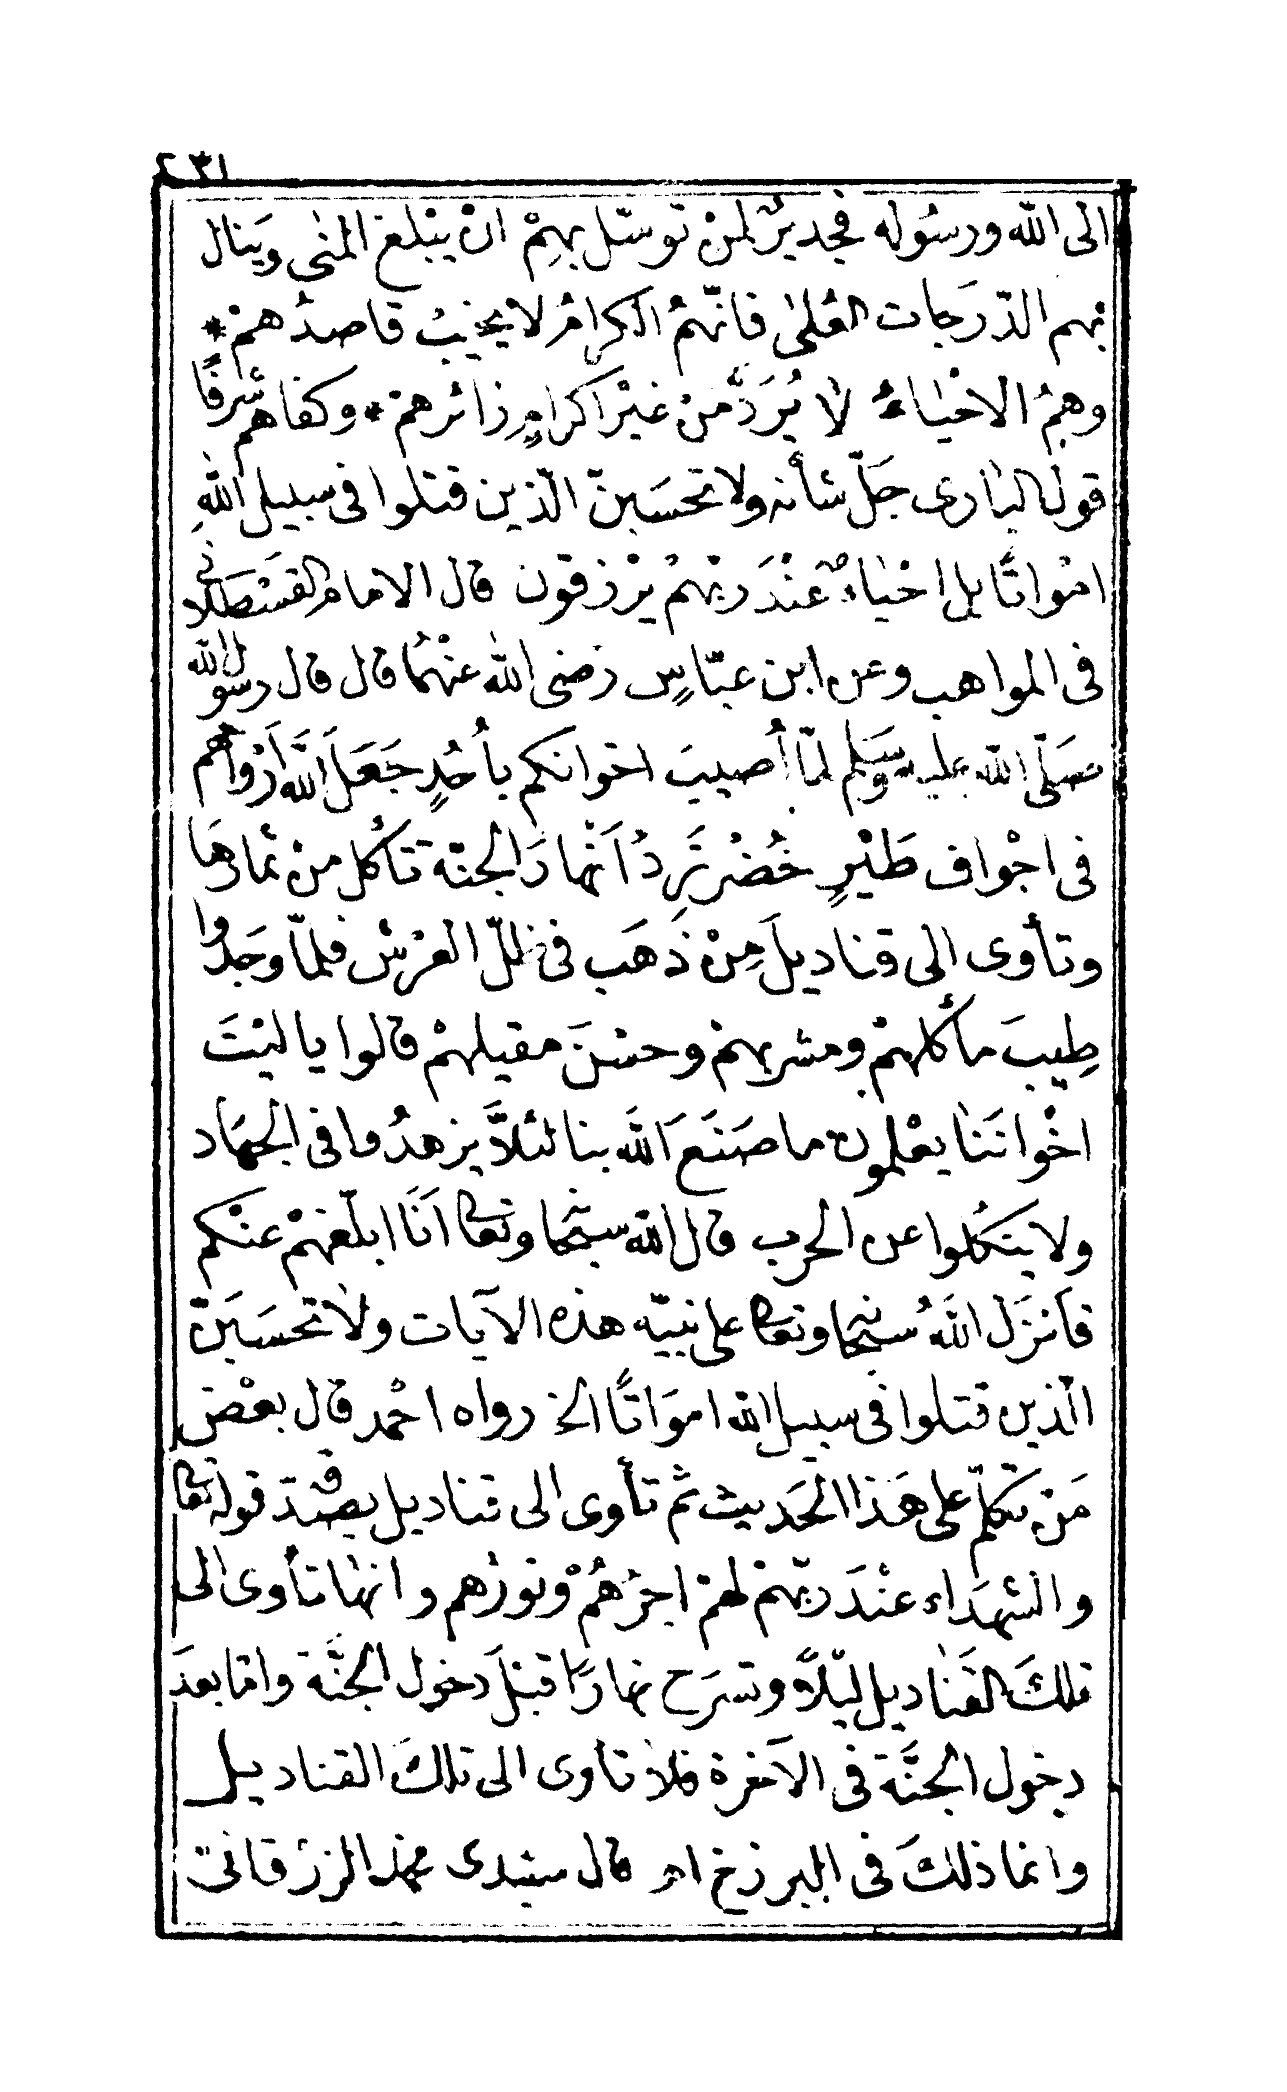 ٤٣١
الى الله ورسُوله فجديرٌ لمنْ تَوسّل بهِمْ انْ يبْلغ المنٰى وَينال
بهم الدّرَجات العُلىٰ فانّهمُ الكرامُ لا يخيبُ قاصدُهمْ *
وهمُ الاحْياءُ لا يُرَدُّ منْ غيْر اكرامٍ زائرهمْ * وكفاهم شرفًا
قول البٰارى جَلّ شأنه ولا تحْسَبنّ الّذين قتلوا فى سبيل اللهِ
امْواتًا بل احْياءٌ عنْدَ ربّهمْ يرْزقون قال الامام القسْطلانى
فى المواهب وعن ابن عبّاسٍ رضى الله عنْهُما قال قال رسول الله
صَلّى الله عليه وسَلم لمّا أُصيبَ اخوانكم بأُحُدٍ جَعَلَ اللهُ اَرْواحهم
فى اجْواف طَيْرٍ خُضْرٍ تَرِدُ اَنْهارَ الجنّة تأكُل منْ ثمارهَا
وتأوى الى قناديلَ مِنْ ذَهَب فى ظلّ العرْش فلمّا وجَدُوا
طِيبَ مأكلهمْ ومشربهمْ وحسْنَ مقيلهمْ قالوا يا ليْتَ
اخْواننَا يعْلمون ما صَنَعَ الله بنا لئلاَّ يزهدُوا فى الجهَاد
ولا يتكُلوا عن الحرب قال الله سبْحانه وتعالى اَنَا ابلّغهمْ عنْكم
فاَنزَل اللهُ سُبحانه وتعالى على نبيّه هذه الآيات ولا تحْسَبَنّ
الّذين قتلوا فى سبيل الله امَواتًا الخ رواه احْمد قال بعْض
مَنْ تكلّم على هَذا الحَديث ثم تأوى الى قناديل يصْدقه قوله تعالى
والشهَداء عنْدَ ربّهمْ لهمْ اجرُهُمْ ونورُهم وانهٰا تأوى الى
تلكَ القَناديل ليْلاً وتسرَح نهارًا قبْلَ دخول الجنَّة وامّا بعدَ
دخول الجنَّة فى الآخرة فلا تأوى الى تلكَ القناديل
وانما ذلكَ فى البرزخ اهـ قال سيّدى محمّد الزرْقانىّ